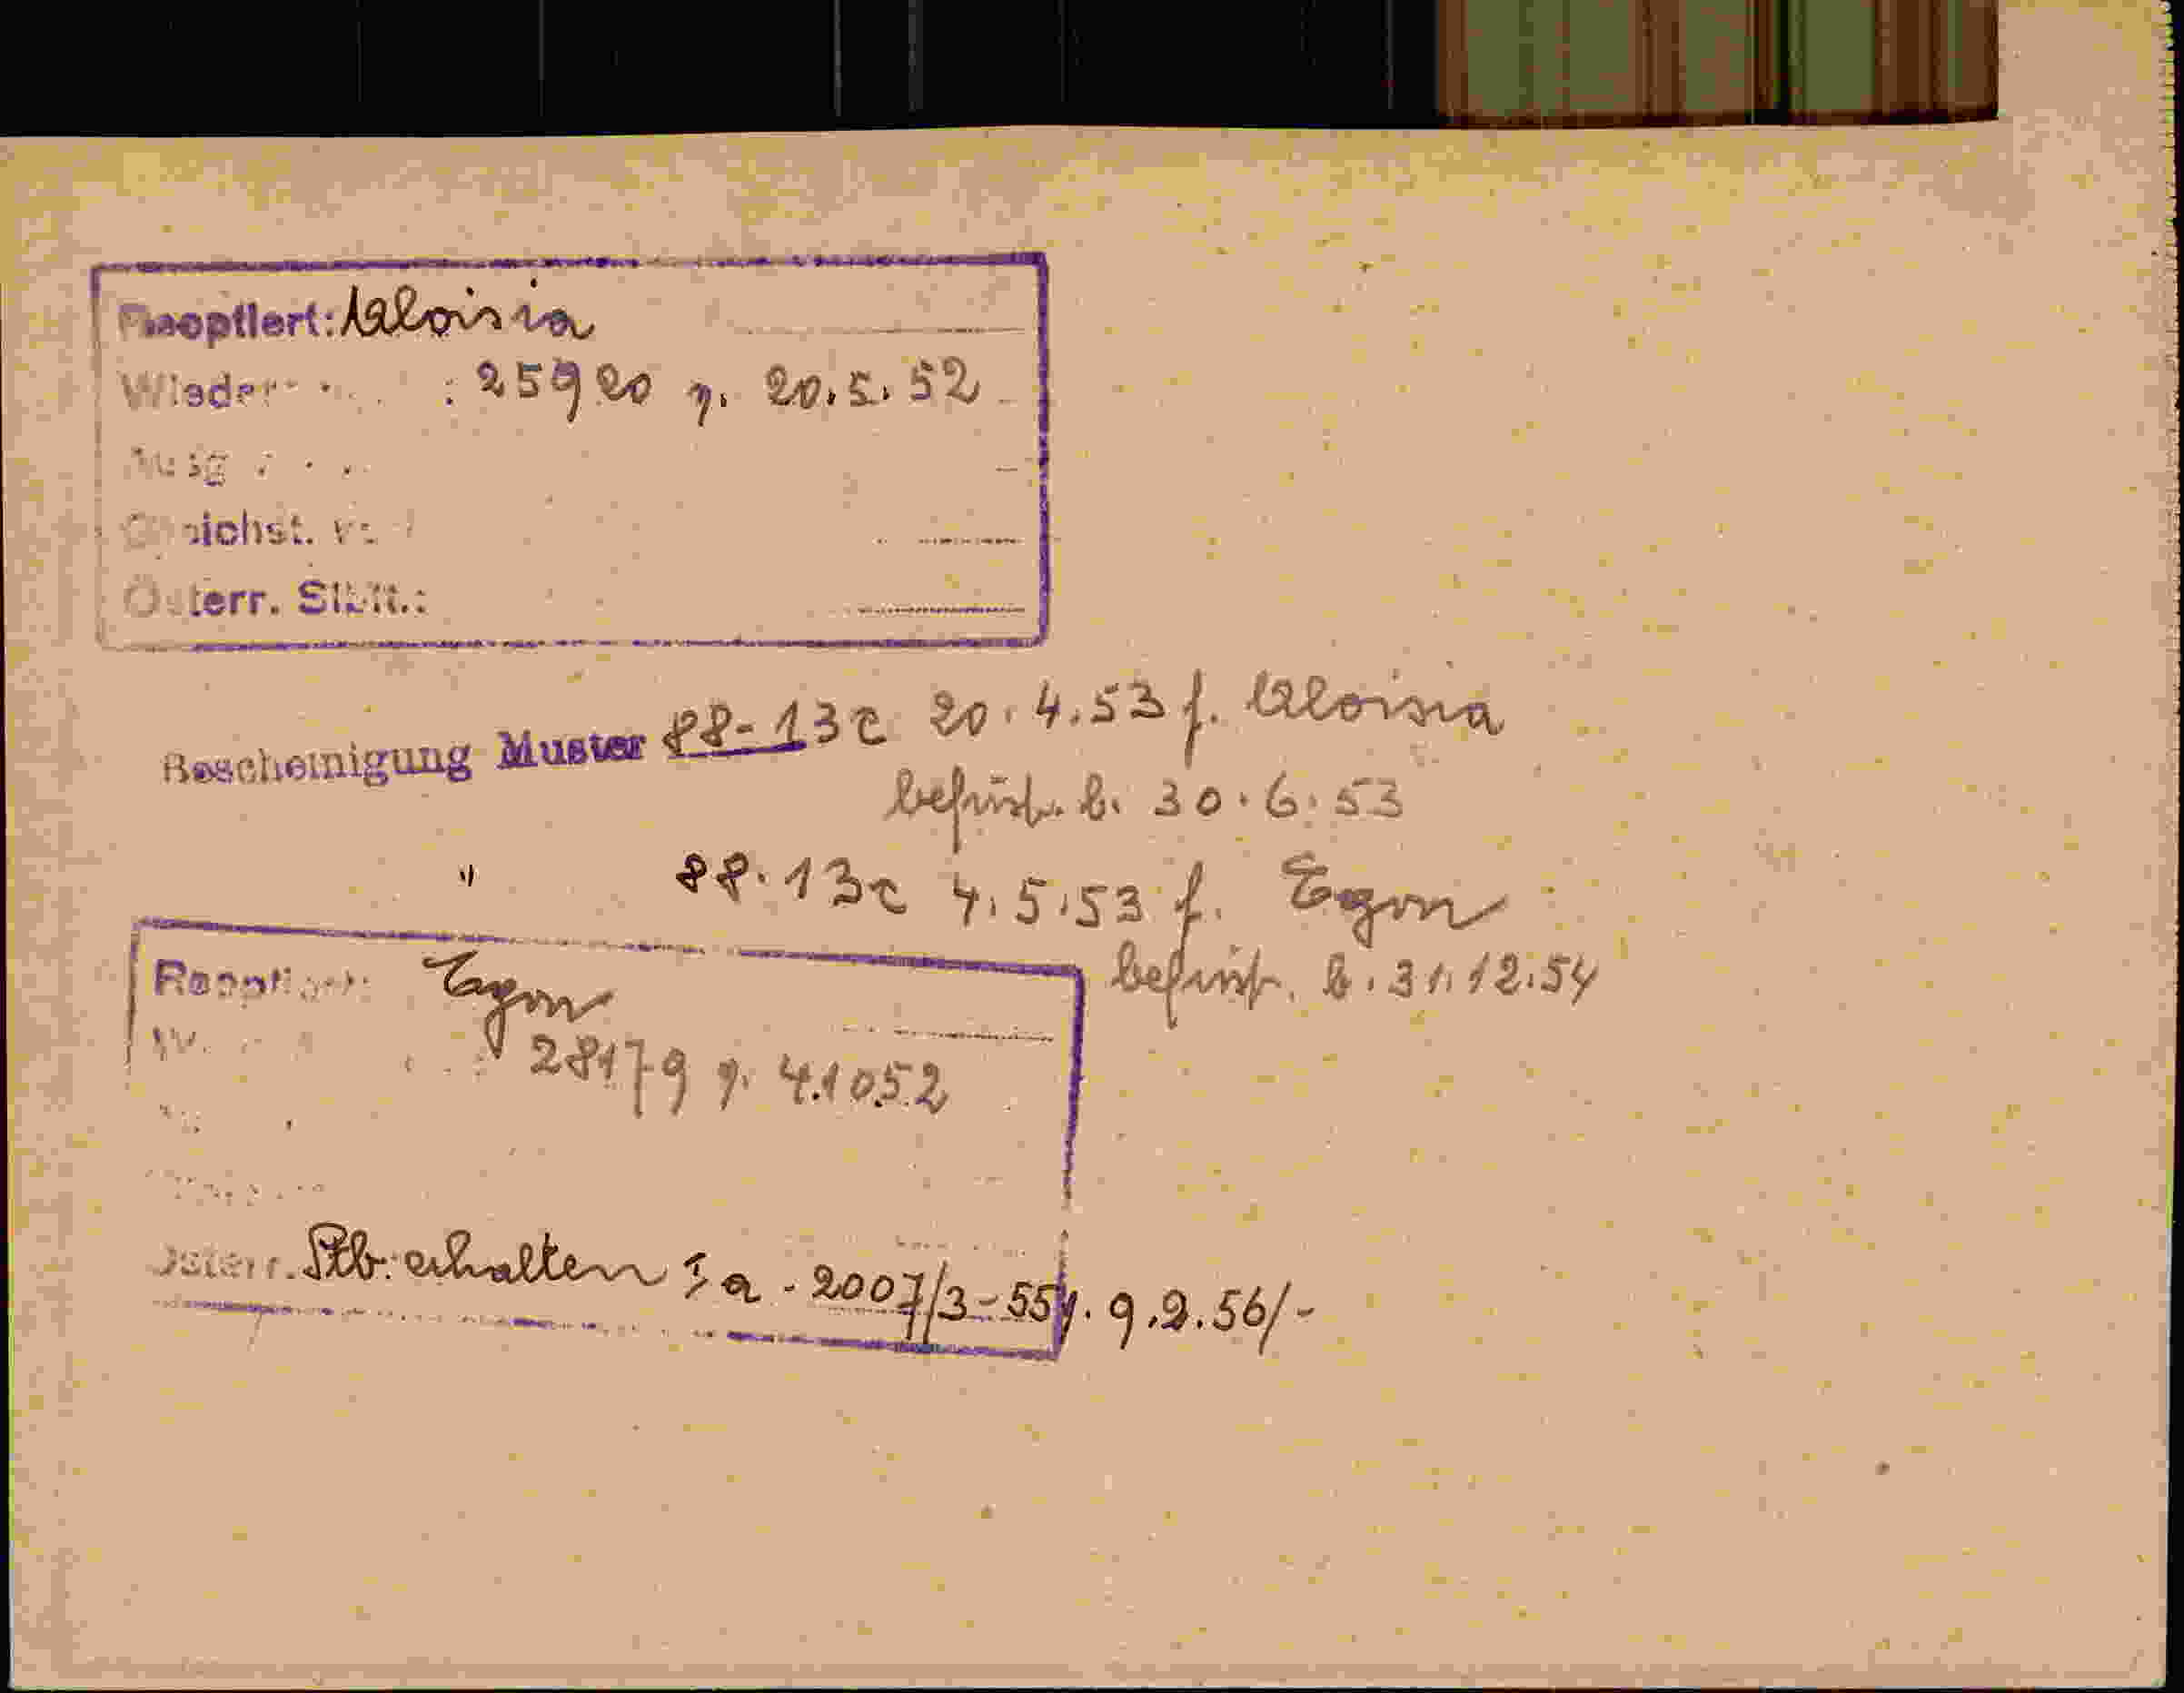 Reoptiert: Aloisia
Wieder : 25920 v. 20.5.52
Österr. Stbt.:
Bescheinigung Muster 88-13c 20.4.53 f. Aloisia
befrist. b. 30.6.53
" 88.13c 4.5.53 f. Egon
befrist. b. 31.12.54
Reoptiert: Egon
28179 v. 4.10.52
Österr. Stb. erhalten I a - 2007/3-55 v. 9.2.56/-